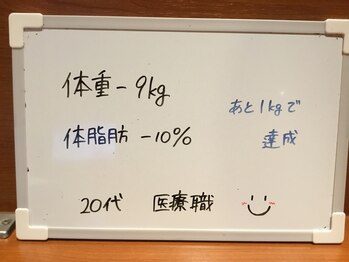 体重 − 9kg
体脂肪 −10%
あと1kgで
達成
20代 医療職